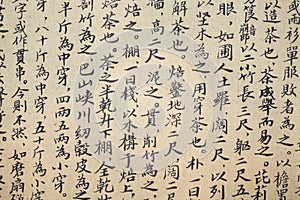 或雨衫單服敗者為之。以檐置
以造茶也。茶成舉而易之。芘莉
筤以二小竹長三尺,軀二尺五
眼,如圃人土羅,闊二尺以列
以堅木為之,用穿茶也。朴,一曰
解茶也。焙,鑿地深二尺,闊二
墻,高二尺,泥之。貫,削竹為之,
焙之。棚,一曰棧,以木構於焙上,
焙茶也。茶之半乾升下棚,全乾
剖竹為之。巴山峽川紉穀皮為之
半斤為中穿,四兩五兩為小穿。
十斤為中穿,五十斤為小穿
字,或作貫串,今則不然,如磨扇